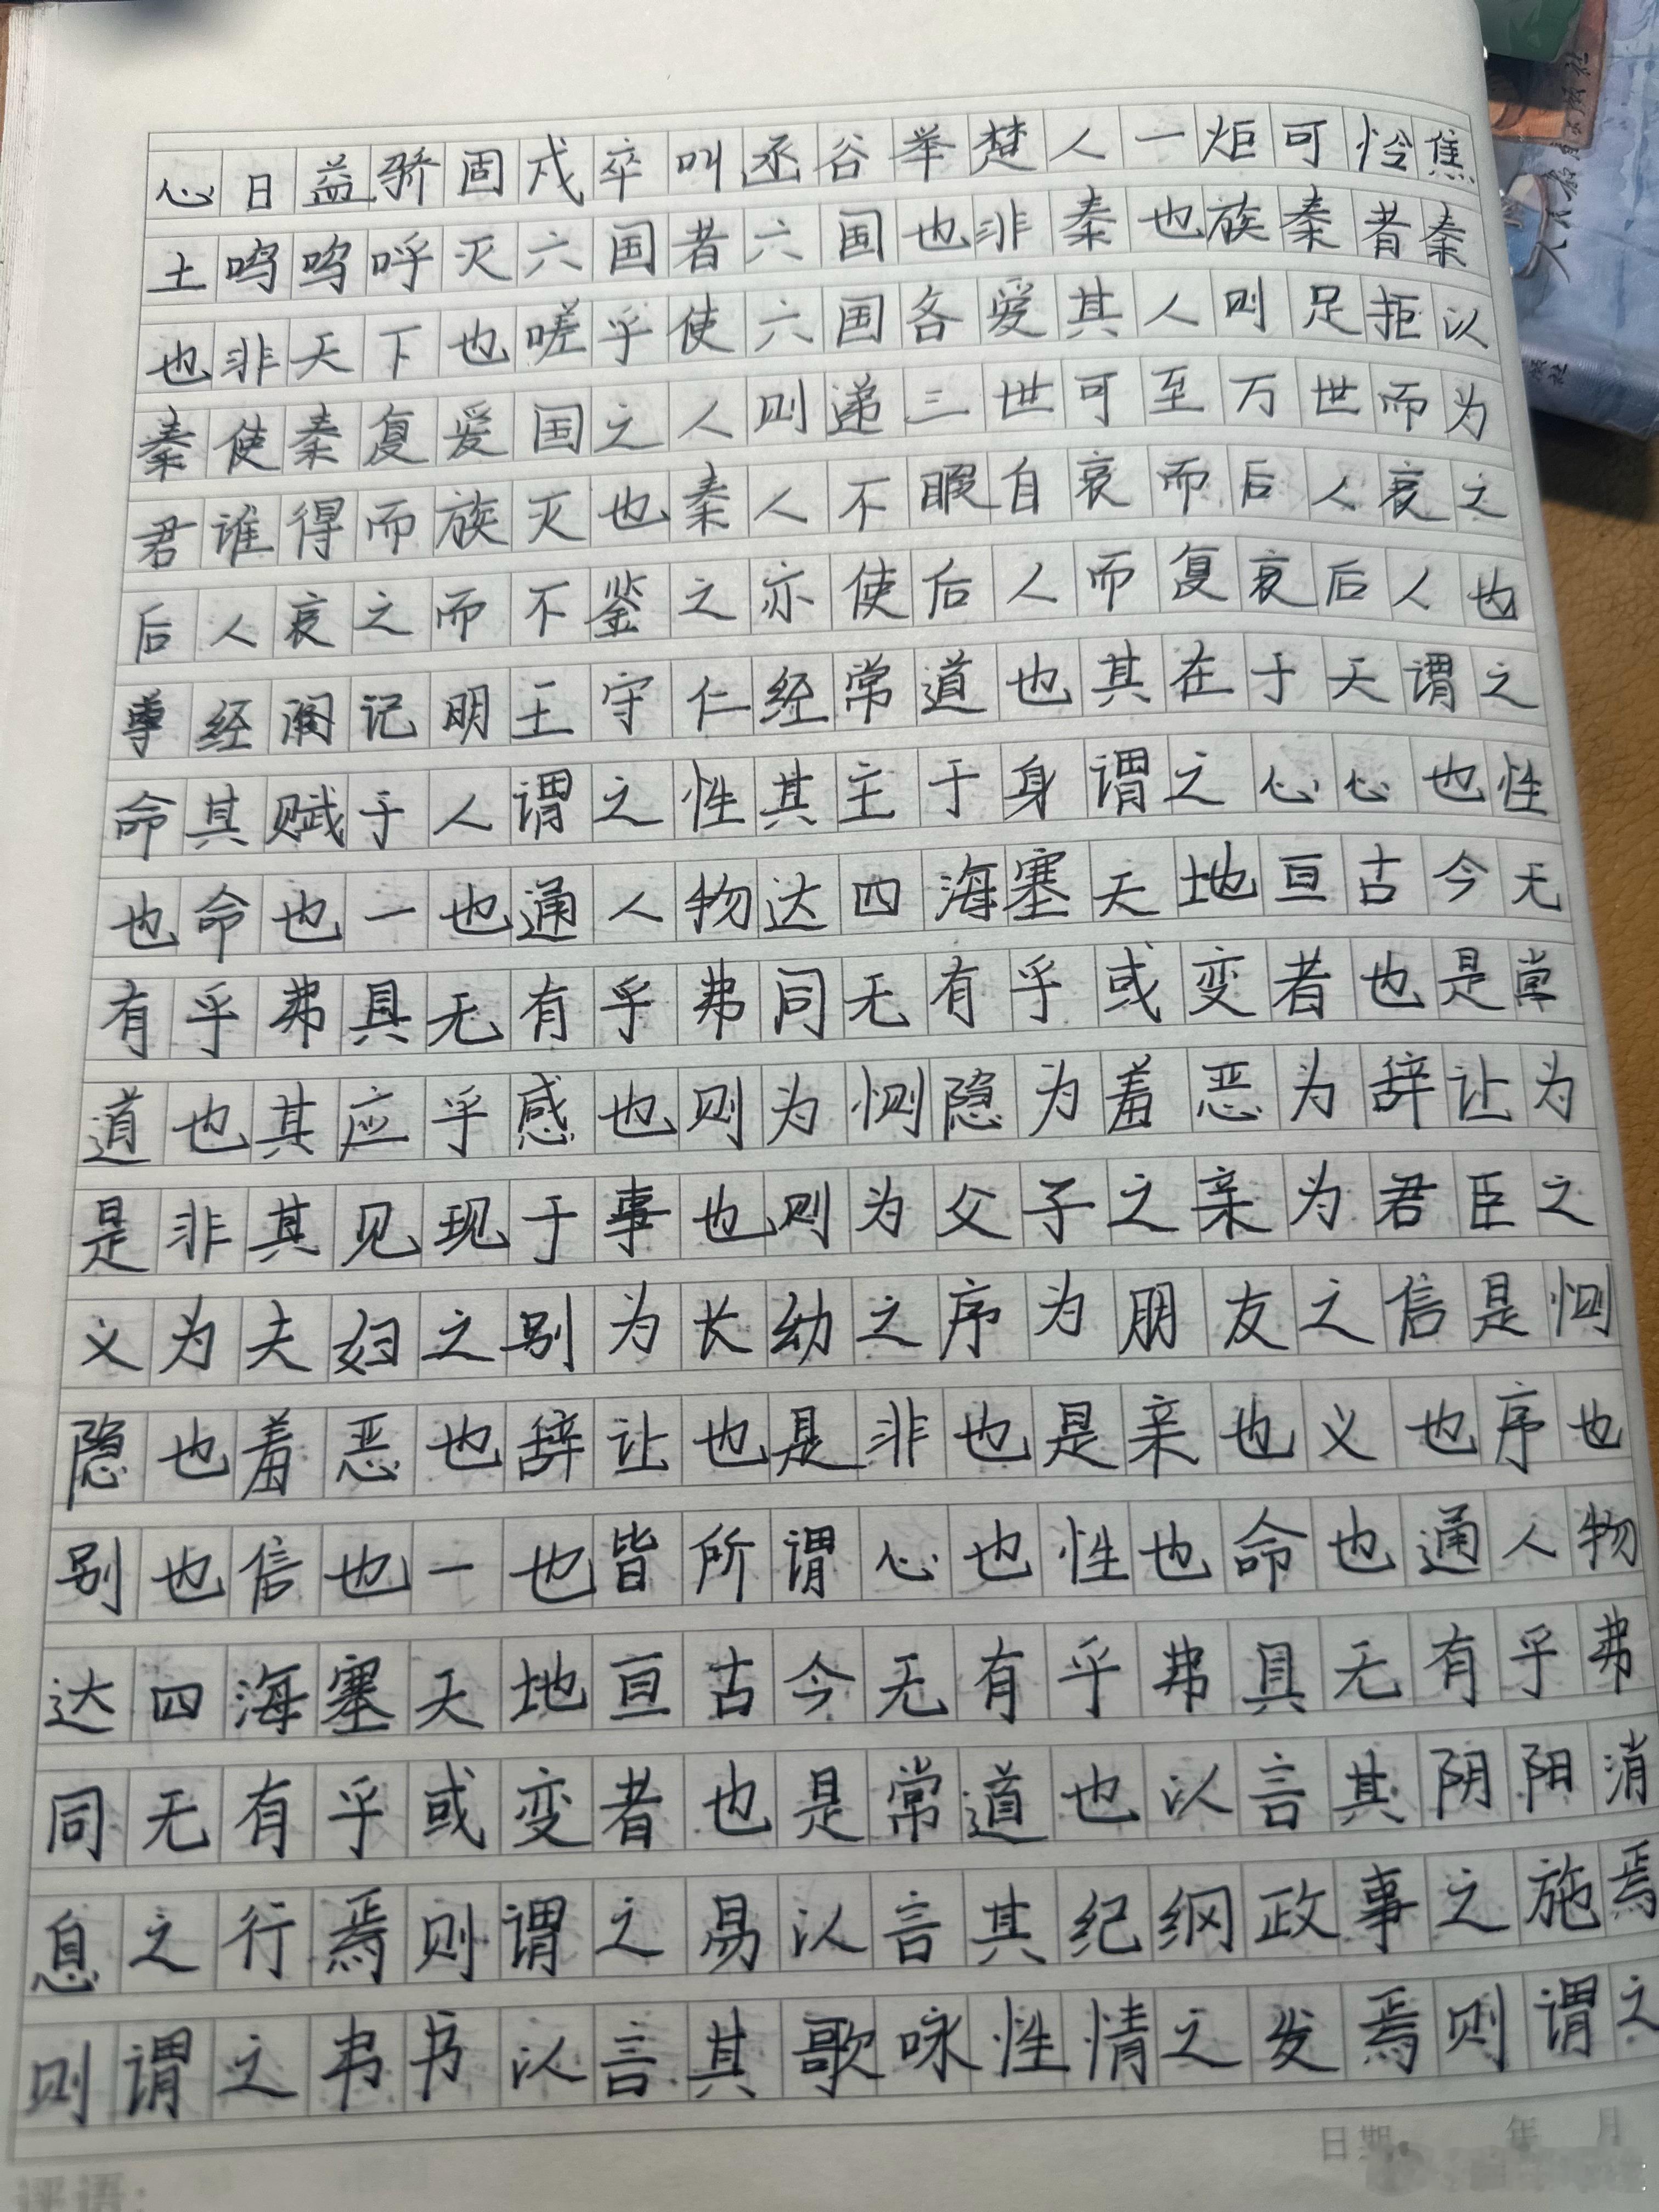 心日益骄固戍卒叫丞谷举楚人一炬可怜焦
土呜呜呼灭六国者六国也非秦也族秦者秦
也非天下也嗟乎使六国各爱其人则足拒以
秦使秦复爱国之人则递三世可至万世而为
君谁得而族灭也秦人不暇自哀而后人哀之
后人哀之而不鉴之亦使后人而复哀后人也
尊经阁记明王守仁经常道也其在于天谓之
命其赋于人谓之性其主于身谓之心心也性
也命也一也通人物达四海塞天地亘古今无
有乎弗具无有乎弗同无有乎或变者也是常
道也其应乎感也则为恻隐为羞恶为辞让为
是非其见现于事也则为父子之亲为君臣之
义为夫妇之别为长幼之序为朋友之信是恻
隐也羞恶也辞让也是非也是亲也义也序也
别也信也一也皆所谓心也性也命也通人物
达四海塞天地亘古今无有乎弗具无有乎弗
同无有乎或变者也是常道也以言其阴阳消
息之行焉则谓之易以言其纪纲政事之施焉
则谓之书以言其歌咏性情之发焉则谓之
日期 年 月
评语: